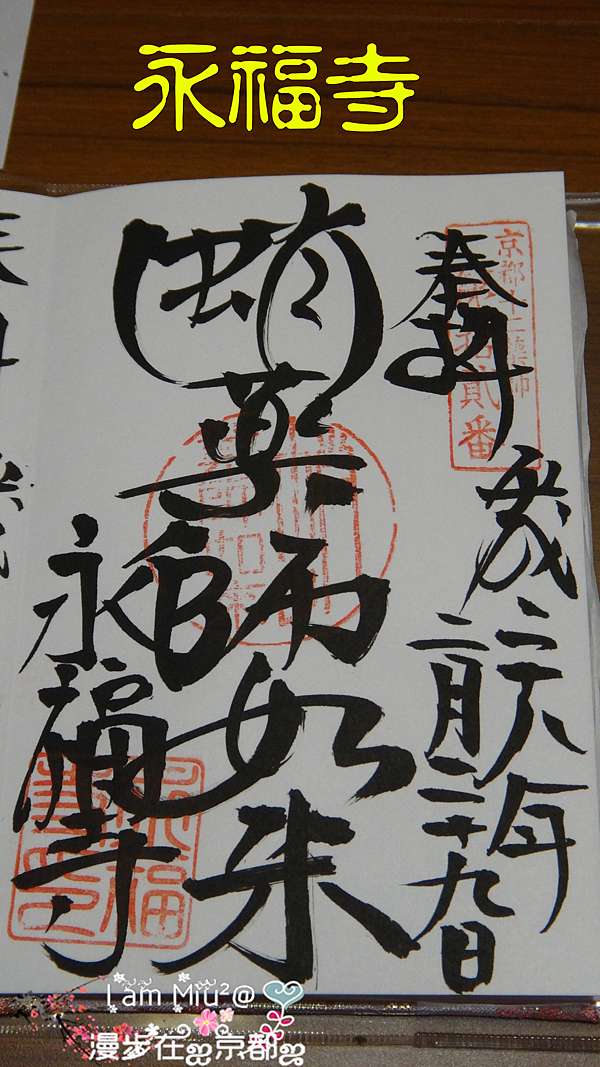 永福寺
奉拝
京都十二薬師
第拾貳番
平成二十六年
月二十九日
蛸薬師如来
永福寺
Lam Miu²@
漫步在ஐ京都ஐ